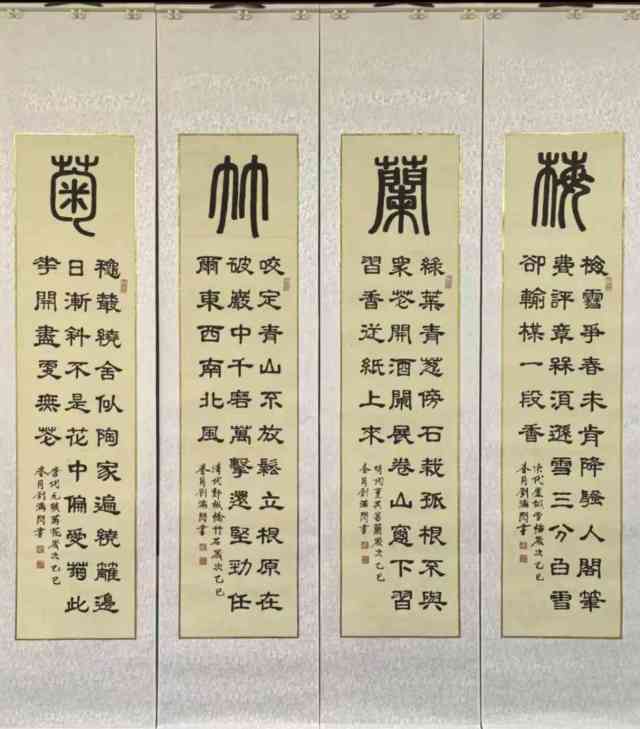 梅
梅雪爭春未肯降騷人閣筆
費評章梅須遜雪三分白雪
卻輸梅一段香
宋代盧鉞雪梅歲次乙巳
春月劉書
蘭
綠葉青蔥傍石栽孤根不與
眾花開酒闌展卷山窗下習
習香從紙上來
明代董其昌蘭歲次乙巳
春月劉書
竹
咬定青山不放鬆立根原在
破巖中千磨萬擊還堅勁任
爾東西南北風
清代鄭板橋竹石歲次乙巳
春月劉書
菊
穐叢繞舍似陶家遍繞籬邊
日漸斜不是花中偏愛菊此
花開盡更無花
唐代元稹菊花歲次乙巳
春月劉書